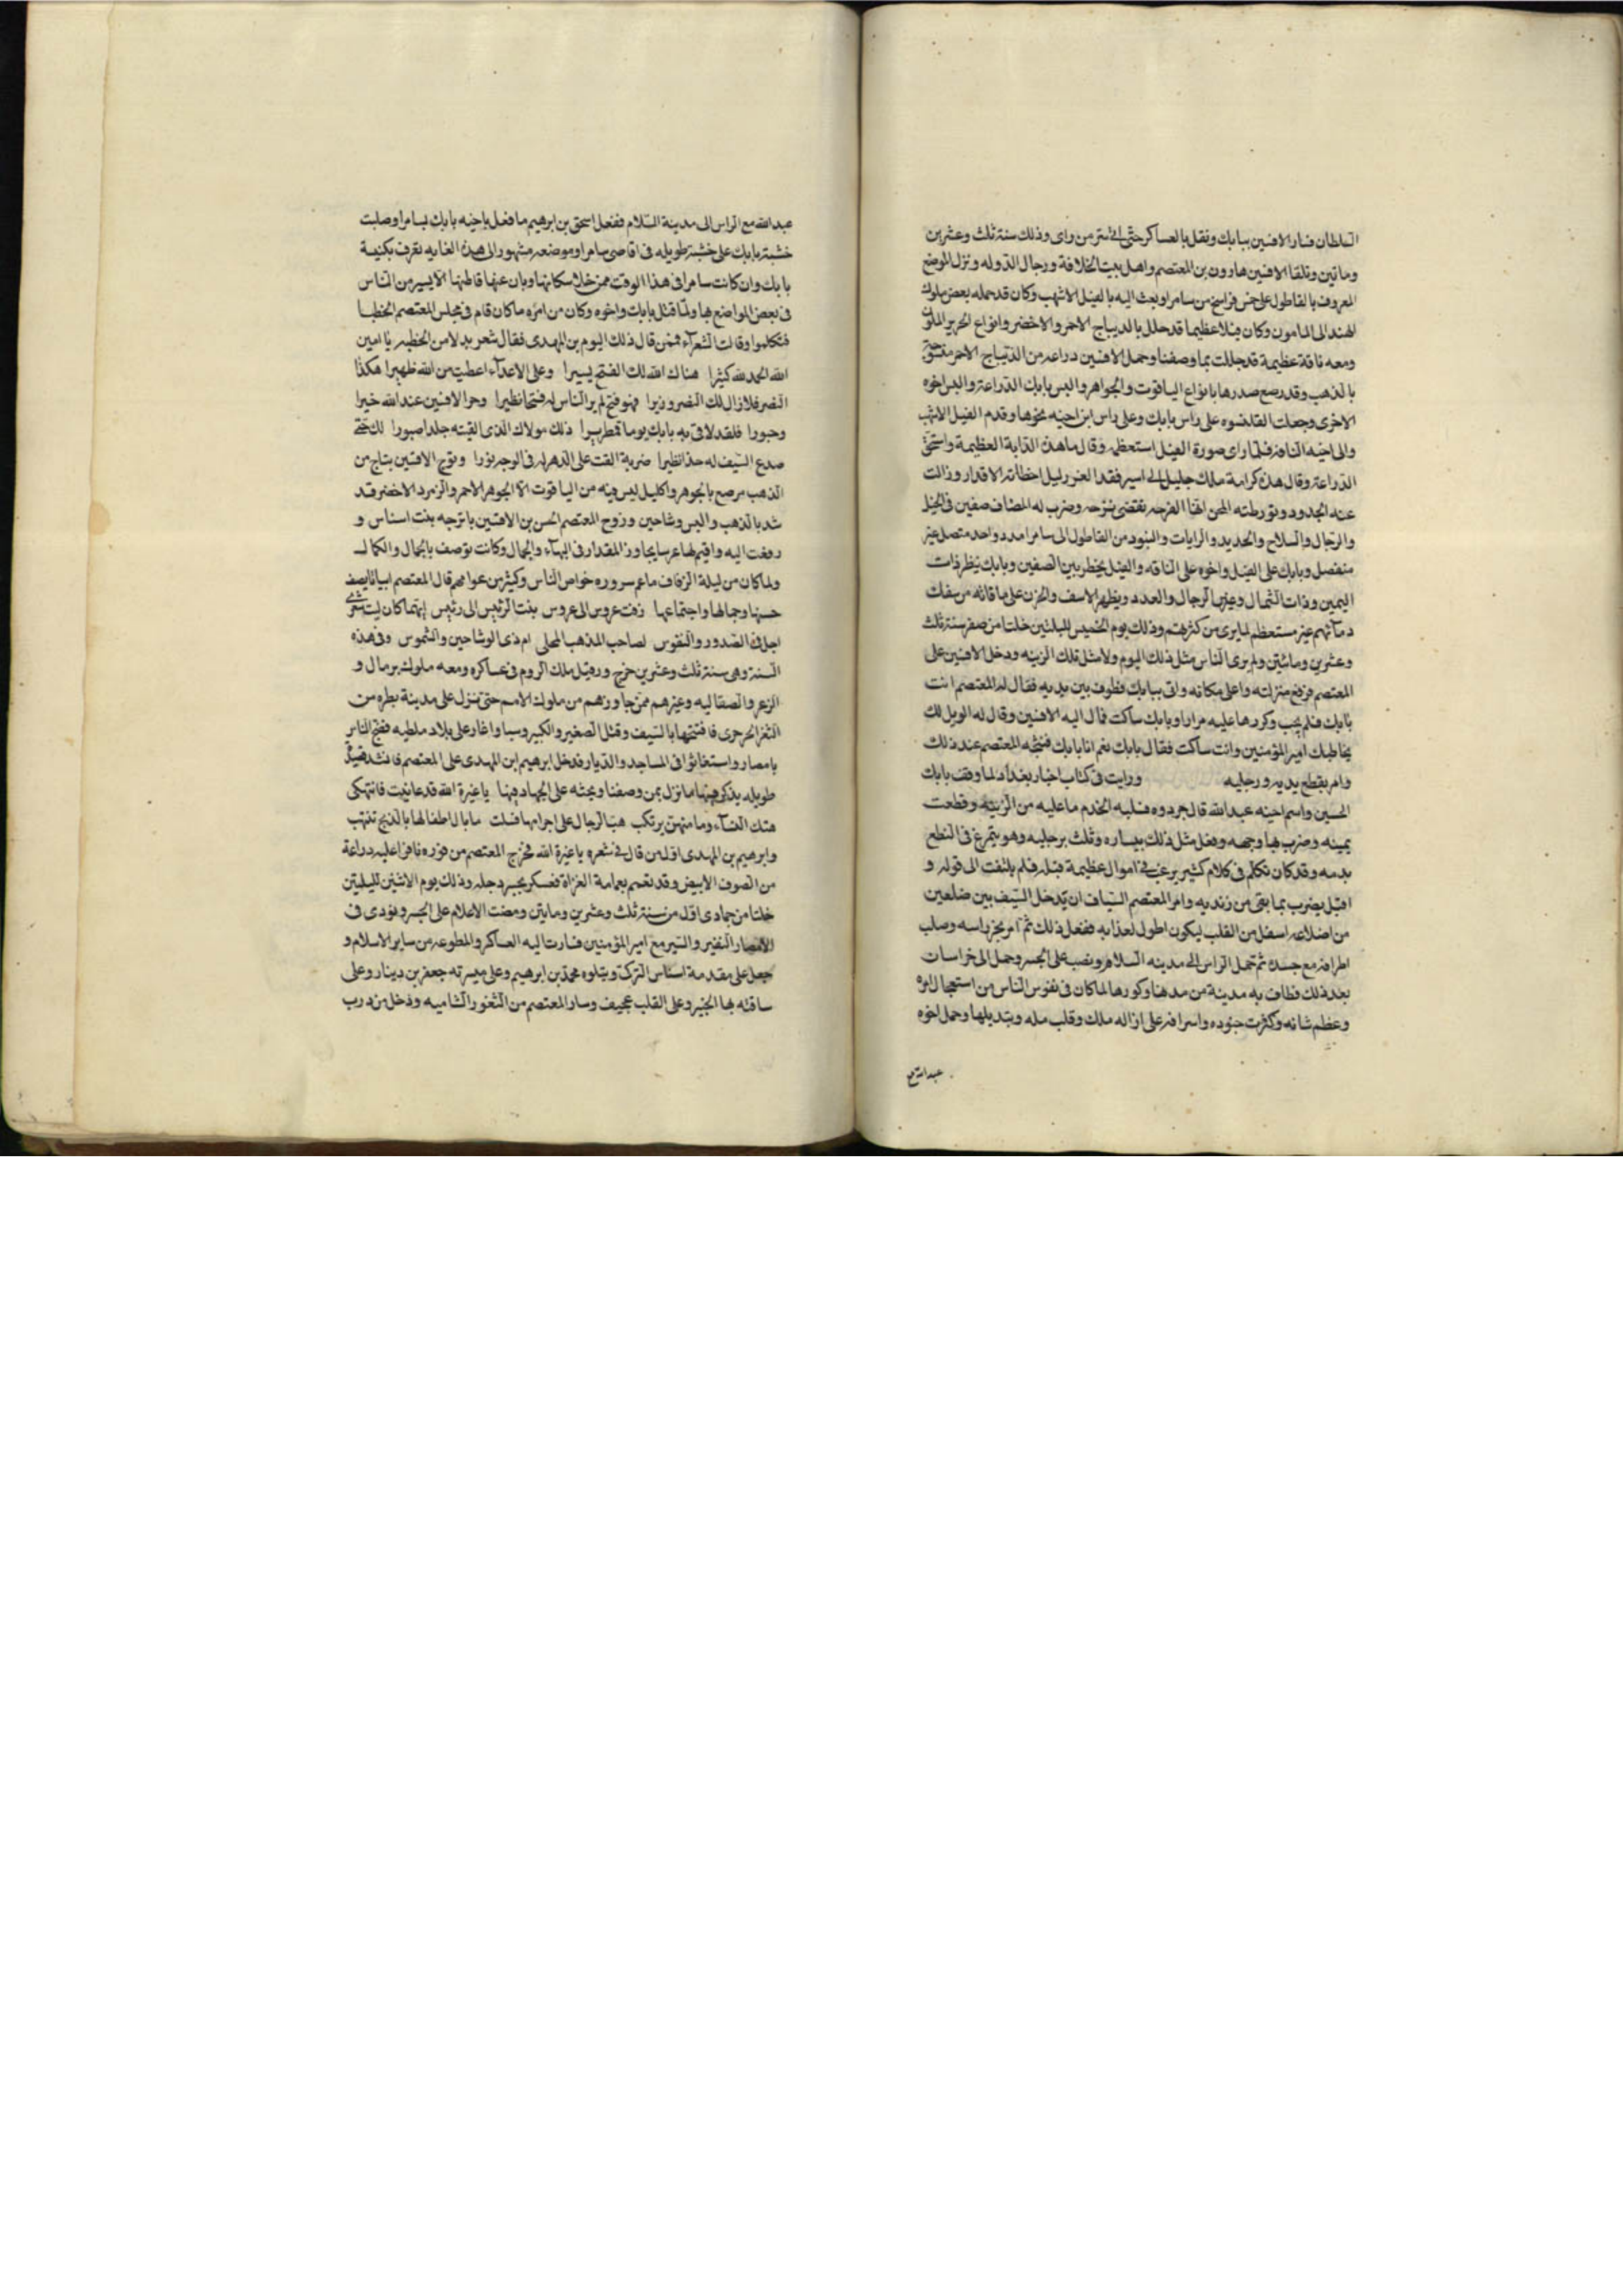 السلطان فسار الافشين ببابك وتقل بالعساكر حتى اتى سر من راى وذلك سنة ثلث وعشرين
وماتين وتلقا الافشين هارون بن المعتصم واهل بيت الخلافة ورجال الدوله ونزل الموضع
المعروف بالقاطول على خمس فراسخ من سامرا وبعث اليه بالفيل الاشهب وكان قد حمله بعض ملوك
الهند الى المامون وكان فيلا عظيما قد جلل بالديباج الاحمر والاخضر وانواع الحرير الملون
ومعه ناقة عظيمة قد جللت بما وصفنا وحمل الافشين دراعه من الديباج الاحمر منسوجة
بالذهب وقد رصع صدرها بانواع الياقوت والجواهر والبس بابك الدراعة والبس اخوه
الاخرى وجعلت القلنسوه على راس بابك وعلى راس ابن اخيه نحوها وقدم الفيل الاشهب
والى اخيه الناقه فلما راى صورة الفيل استعظمه وقال ما هذه الدابة العظيمة واستحق
الدراعة وقال هذه كرامة ملك جليل الى اسير فقد العز ذليل اخطاته الاقدار وزالت
عنه الجدود وتورطته المحن انها الفرحه تقتضى بترحه وضرب له المصاف صفين فى الخيل
والرجال والسلاح والحديد والرايات والبنود من القاطول الى سامرا مدد واحد متصل غير
منفصل وبابك على الفيل واخوه على الناقه والفيل يخطر بين الصفين وبابك ينظر ذات
اليمين وذات الشمال وعيز الرجال والعدد ويظهر الاسف والحزن على ما فاته من سفك
دمآئهم غير مستعظم لما يرى من كثرتهم وذلك يوم الخميس لليلتين خلتا من صفر سنة ثلث
وعشرين ومائتين ولم يرى الناس مثل ذلك اليوم ولا مثل تلك الزينه ودخل الافشين على
المعتصم فرفع منزلته واعلى مكانه واتى ببابك فطوف بين يديه فقال له المعتصم انت
بابك فلم يجب وكررها عليه مرارا وبابك ساكت فمال اليه الافشين وقال له الويل لك
يخاطبك امير المؤمنين وانت ساكت فقال بابك نعم انا بابك فسجد المعتصم عند ذلك
وامر بقطع يديه ورجليه ورايت فى كتاب اخبار بغداد لما وقف بابك
الحسين واسم اخيه عبدالله قال جردوه فسلبه الخدم ما عليه من الزينه وقطعت
يمينه وضرب بها وجهه وفعل مثل ذلك بيساره وثلث برجليه وهو يتمرغ فى النطع
بدمه وقد كان تكلم فى كلام كثير يرغب فى اموال عظيمة قبله فلم يلتفت الى قوله و
اقبل يضرب بما بقى من زنديه وامر المعتصم السياف ان يدخل السيف بين ضلعين
من اضلاعه اسفل من القلب ليكون اطول لعذابه ففعل ذلك ثم امر بجز راسه وصلب
اطرافه مع جسده ثم حمل الراس الى مدينه السلام ونصب على الجسر وحمل الى خراسان
بعد ذلك فطاف به مدينة من مدنها وكورها لما كان فى نفوس الناس من استفحال امره
وعظم شانه وكثرت جنوده واسرافه على ازاله ملك وقلب مله وتبديلها وحمل اخوه
عبدالله مع
عبدالله مع الراس الى مدينة السلام ففعل اسحق بن ابرهيم ما فعل باخيه بابك بسامرا وصلبت
خشبة بابك على خشبة طويله فى اقاصى سامرا وموضعه مشهور الى هذه الغايه تعرف بكنيسة
بابك وان كانت سامرا فى هذا الوقت ممن خلا سكانها وبان عنها قاطنها الا يسير من الناس
فى بعض المواضع بها ولما قتل بابك واخوه وكان من امره ما كان قام فى مجلس المعتصم الخطبا
فتكلموا وقالت الشعرآء فممن قال ذلك اليوم بن المهدى فقال شعر بدلا من الخطبه يا امين
الله الحمد لله كثيرا هناك الله لك الفتح يسيرا وعلى الاعدآء اعطيت من الله ظهيرا هكذا
النصر فلا زال لك النصر وزيرا فهو فتح لم ير الناس له فتحا نظيرا وحر الافشين عند الله خيرا
وحبورا فلقد لاقى به بابك يوما قمطريرا ذلك مولاك الذى القيته جلدا صبورا لك حتى
صدع السيف له حدا نظيرا ضربة القت على الدهر له فى الوجه نورا وتوج الافشين بتاج من
الذهب مرصع بالجوهر واكليل ليس فيه من الياقوت الا الجوهر الاحمر والزمرد الاخضر قد
شد بالذهب والبس وشاحين وزوج المعتصم الحسن بن الافشين باترجه بنت اسناس و
زفت اليه واقيم لها عرسا يجاوز المقدار فى البهآء والجمال وكانت توصف بالجمال والكمال
ولما كان من ليلة الزفاف ما عم سروره خواص الناس وكثير من عوامهم قال المعتصم ابياتا يصف
حسنها وجمالها واجتماعها زفت عروس الى عروس بنت الرئيس الى رئيس ايهما كان ليت شعرى
اجل فى الصدور والنفوس لصاحب المذهب المحلى ام ذى الوشاحين والشموس وفى هذه
السنة وهى سنة ثلث وعشرين خرج ورفيل ملك الروم فى عساكره ومعه ملوك برمال و
الزعر والصقاليه وغيرهم ممن جاورهم من ملوك الامم حتى نزل على مدينة بطره من
الثغر الحرجرى فافتتحها بالسيف وقتل الصغير والكبير وسبا واغار على بلاد ملطيه ففج الناس
بامصار واستغاثوا فى المساجد والديار فدخل ابرهيم ابن المهدى على المعتصم فانشد قصيدة
طويله يذكر فيها ما نزل بمن وصفنا ويحثه على الجهاد فيها يا غيرة الله قد عانيت فانتهكى
هتك النسآء وما منهن يرتكب هب الرجال على اجرامها قتلت ما بال اطفالها بالذبح تنتهب
وابرهيم بن المهدى اول من قال فى شعره يا غيرة الله فخرج المعتصم من فوره نافرا عليه دراعة
من الصوف الابيض وقد تعمم بعمامة الغزاة فعسكر بجسر دجله وذلك يوم الاثنين لليلتين
خلتا من جمادى اول من سنة ثلث وعشرين ومايتن ومضت الاعلام على الجسر ونودى فى
الامصار النفير والسير مع امير المؤمنين فسارت اليه العساكر والمطوعه من ساير الاسلام و
جعل على مقدمة اسناس التركى ويتلوه محمد بن ابرهيم وعلى ميسرته جعفر بن دينار وعلى
ساقته بها الخير وعلى القلب عجيف وسار المعتصم من الثغور الشاميه ودخل من درب